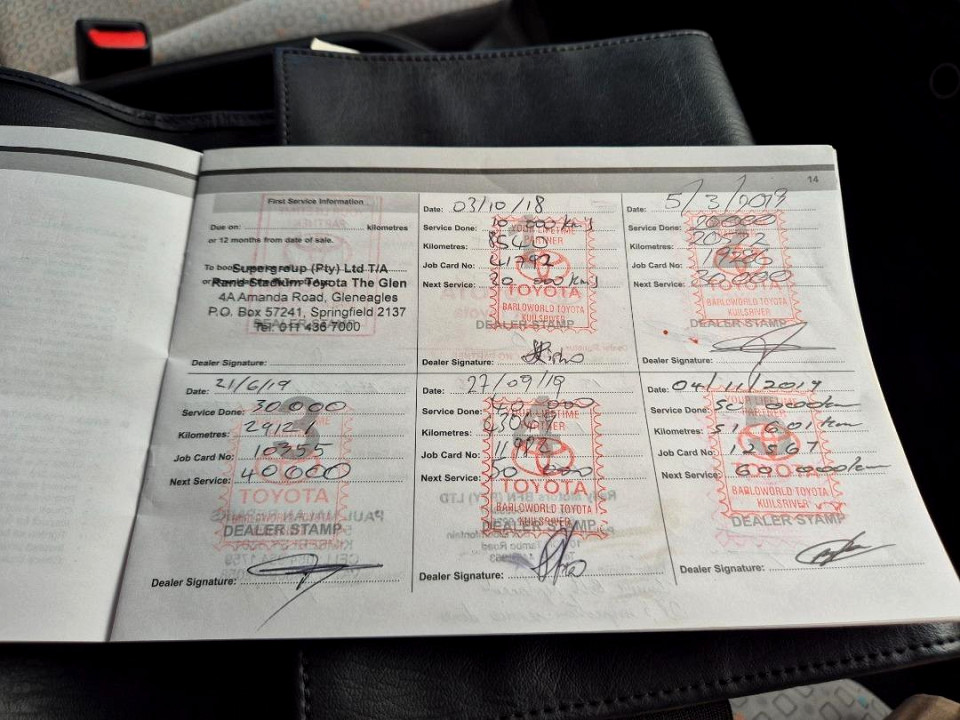 14
First Service Information
Due on: kilometres
or 12 months from date of sale.
To book
Supergroup (Pty) Ltd T/A
Rand Stadium Toyota The Glen
4A Amanda Road, Gleneagles
P.O. Box 57241, Springfield 2137
Tel: 011 436 7000
DEALER STAMP
Dealer Signature:
Date: 03/10/18
Service Done: 10 000 km
Kilometres: 8540
Job Card No: 41792
Next Service: 20 000 km
YOUR LIFETIME
PARTNER
TOYOTA
BARLOWORLD TOYOTA
KUILSRIVER
DEALER STAMP
Dealer Signature:
Date: 5/3/2019
Service Done: 20000
Kilometres: 20572
Job Card No:
Next Service: 30.000
TOYOTA
BARLOWORLD TOYOTA
KUILSRIVER
DEALER STAMP
Dealer Signature:
Date: 21/6/19
Service Done: 30.000
Kilometres: 29121
Job Card No: 10355
Next Service: 40000
TOYOTA
DEALER STAMP
Dealer Signature:
Date: 27/09/19
Service Done: 40 000
Kilometres:
Job Card No:
Next Service: 50 000
TOYOTA
BARLOWORLD TOYOTA
KUILSRIVER
DEALER STAMP
Dealer Signature:
Date: 04/11/2019
Service Done: 50 000km
Kilometres: 51 601km
Job Card No: 12567
Next Service: 60 000km
YOUR LIFETIME
PARTNER
TOYOTA
BARLOWORLD TOYOTA
KUILSRIVER
DEALER STAMP
Dealer Signature: